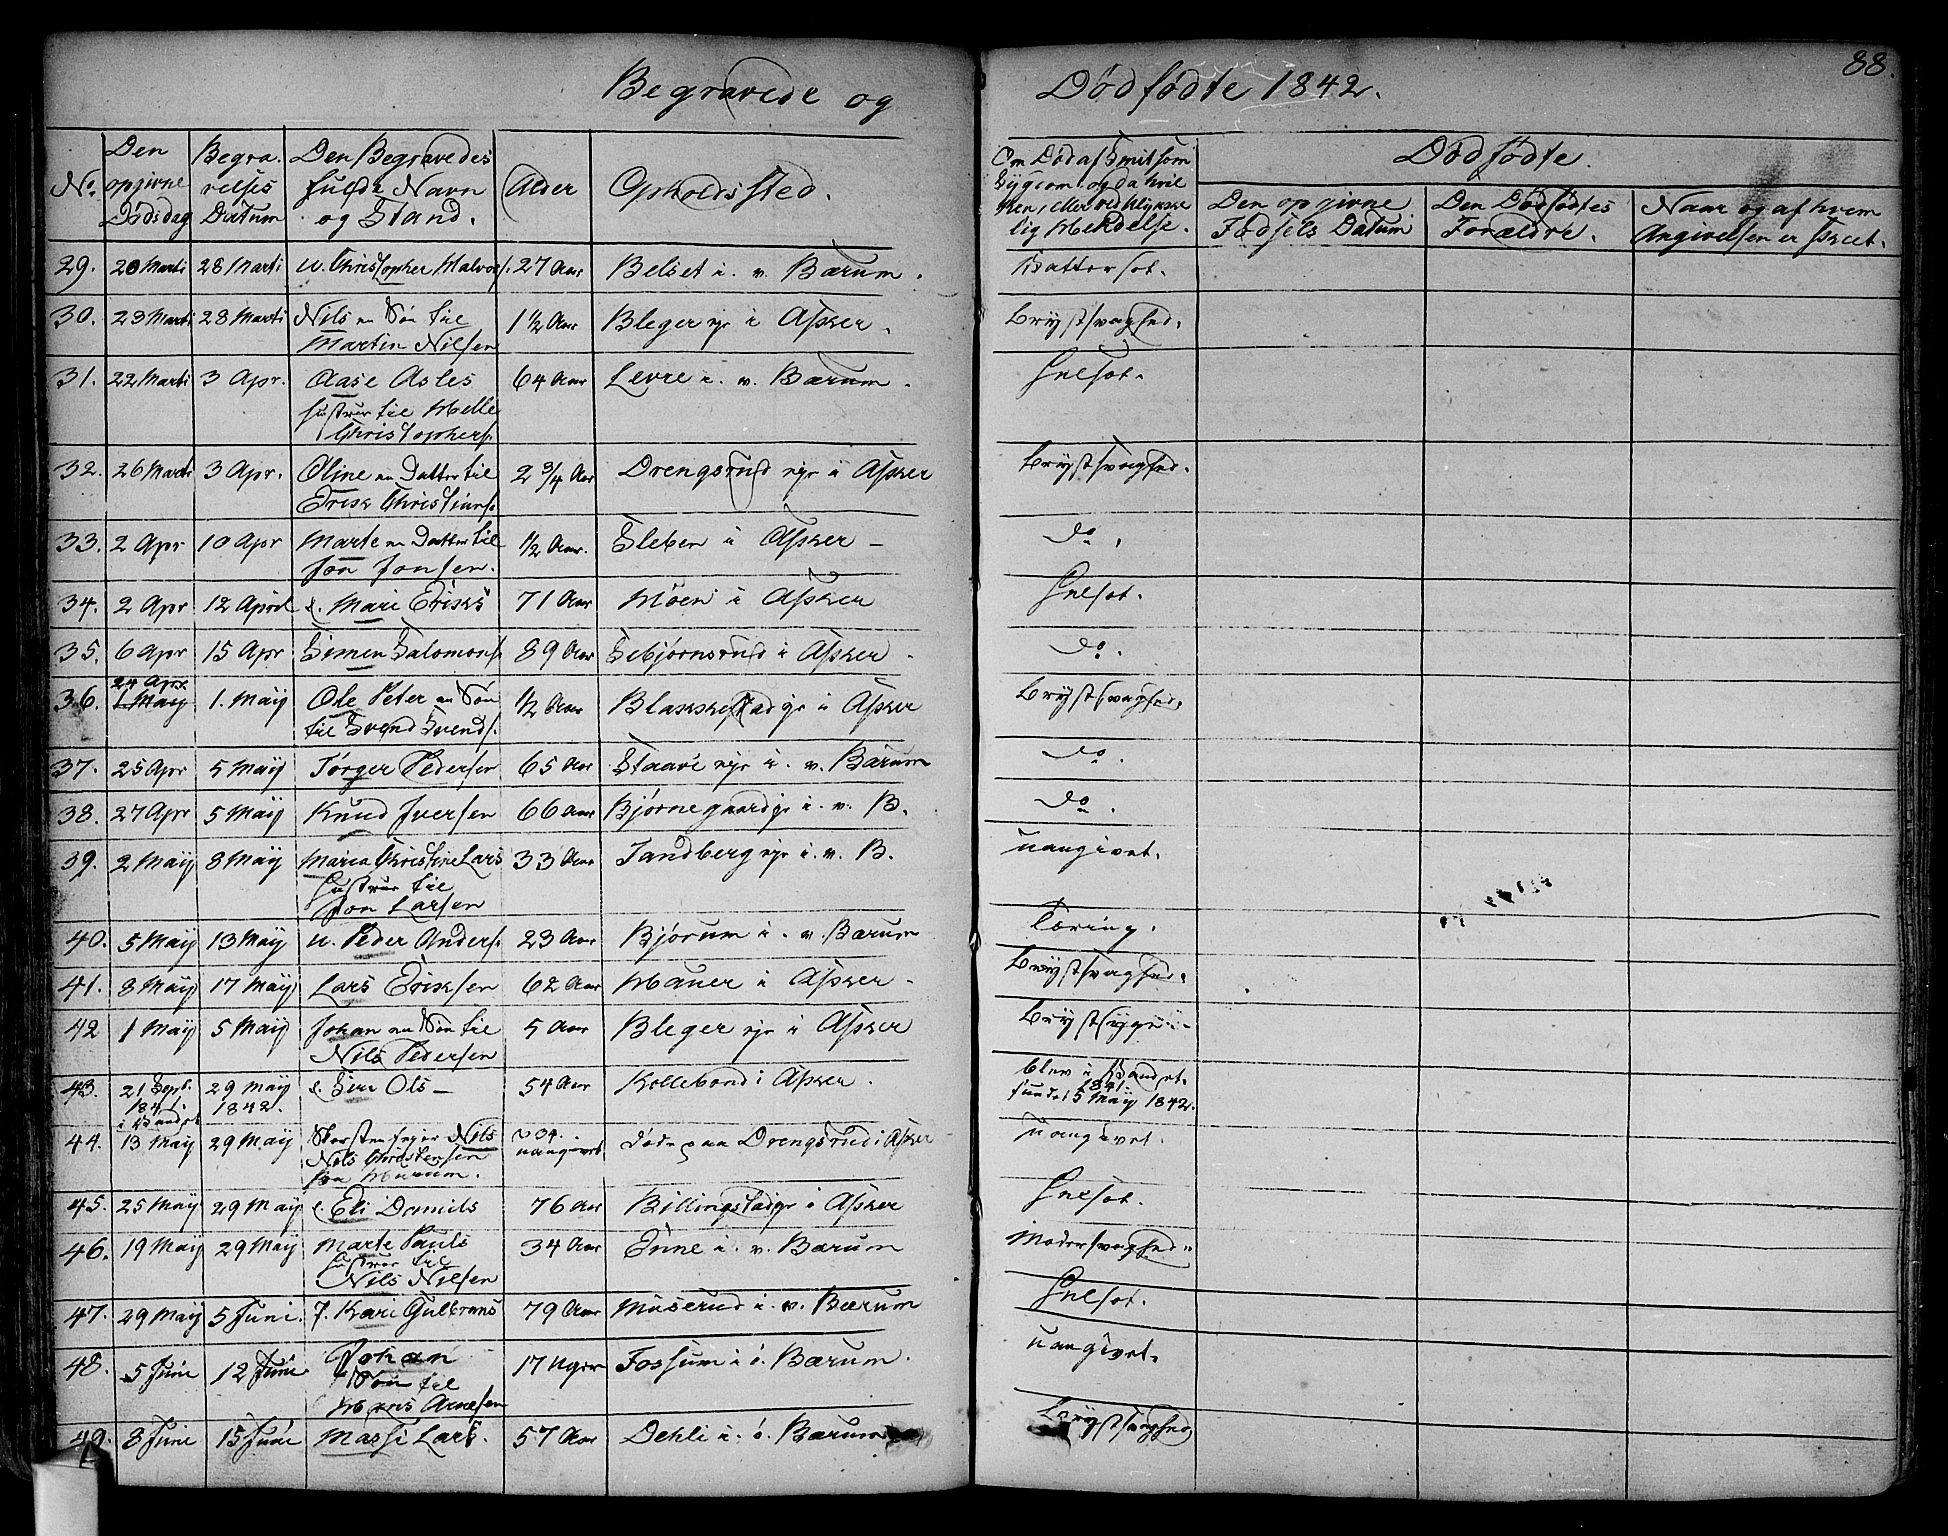 88.
Begravede og Dødfødte 1842.
No. | Den opgivne Dødsdag | Begravelses Datum | Den Begravedes fulde Navn og Stand. | Alder | Opholdssted. | Om Død af Smitsom Sygdom, og da hvilken, eller ved Ulykkelig Hændelse. | Dødfødte.
Den opgivne Fødsels Datum | Den Dødfødtes Forældre. | Naar og af hvem Angivelsen er skeet.
29. | 20 Marti | 28 Marti | u. Christopher Halvors. | 27 Aar | Belset i v. Bærum. | Vattersot.
30. | 23 Marti | 28 Marti | Nils en Søn til Martin Nilsen | 1 1/2 Aar | Bleger eje i Asker. | Brystsvaghed.
31. | 22 Marti | 3 Apr. | Aase Asles Hustrue til Helle Christophers. | 64 Aar | Levre i. v. Bærum. | Gulsot.
32. | 26 Marti | 3 Apr. | Oline en Datter til Erik Christians. | 2 3/4 Aar | Drengsrud eje i Asker | Brystsvaghed.
33. | 2 Apr | 10 Apr | Marte en Datter til Jon Jonsen. | 1/2 Aar. | Sleben i Asker | do.
34. | 2 Apr | 12 April | e. Mari Eriks | 71 Aar | Moen i Asker | Gulsot.
35. | 6 Apr | 15 Apr | Simen Salomons. | 89 Aar | Sebjørnsrud i Asker | do.
36. | 24 Apr. 1 May | 1. Maij | Ole Peter en Søn til Svend Svends. | 1/2 Aar | Blakkestad ge i Asker | Brystsvaghed.
37. | 25 Apr | 5 Maij | Tørger Pedersen | 65 Aar | Staavi eje i. v. Bærum | do.
38. | 27 Apr | 5 Maij | Knud Iversen | 66 Aar | Bjørnegaard ge i. v. B. | do.
39. | 2 Maij | 8 Maij | Maria Christine Lars Hustrue til Jon Larsen | 33 Aar | Tandberg eje i. v. B. | uangivet.
40. | 5 Maij | 13 Maij | u. Peder Anders. | 23 Aar | Bjørum i. v. Bærum | Tæring.
41. | 8 Maij | 17 Maij | Lars Eriksen | 62 Aar | Hauer i Asker | Brystsvaghed.
42 | 1 Maij | 5 Maij | Johan en Søn til Nils Pedersen | 5 Aar | Bleger eje i Asker | Brystsyge
43. | 21 Sept. 1841. i Vandet | 29 Maij 1842. | e. Siri Ols | 54 Aar | Kollebond i Asker. | blev i Vandet 1841. fundet 5 Maij 1842.
44. | 13 Maij | 29 Maij | Skorstensfejer Nils Nils Christensen fra Hurum. | uangivet | døde paa Drengsrud i Asker | uangivet.
45. | 25 Maij | 29 Maij | e. Eli Daniels | 76 Aar | Billingstad ge i Asker | Gulsot.
46. | 19 Maij | 29 Maij | Marte Pauls Hustrue til Nils Nilsen | 34 Aar | Enne i. v. Bærum | Modersvaghed.
47. | 29 Maij | 5 Juni. | f. Kari Gulbrans | 79 Aar | Muserud i. v. Bærum | Gulsot.
48. | 5 Juni | 12 Juni | Johan Søn til Hans Arnesen | 17 Uger | Fossum i ø. Bærum. | uangivet.
49. | 8 Juni | 15 Juni | Massi Lars. | 57 Aar | Dehli i. ø. Bærum | Brystsvaghed